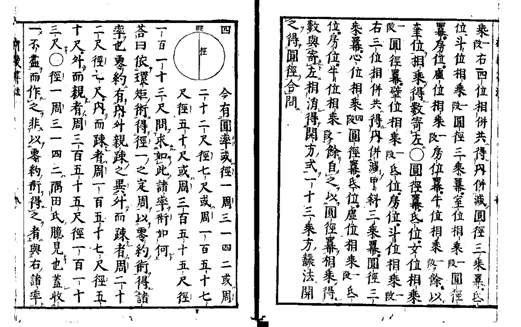 乘段右四位相併共得内併減圓徑三乘冪氐
位斗位相乘段圓徑三乘冪室位相乘段
冪牛位相乘段房位冪斗位相乘段餘以
房位虚位相乘段房位冪女位相乘一
奎位相乘得數寄左〇圓徑冪氐位女位相乘
段圓徑冪壁位相乘段氐位房位斗位相乘段
右三位相併共得内併減甲斜三乘冪圓徑三
乘冪心位相乘段圓徑冪氐位虚位相乘段氐
位房位牛位相乘段餘自之以圓徑冪相乘得
數與寄左相消得開方式一十三乘方飜法開
之得圓徑合問
四 今有圓率或徑一周三一四二或周
二十二尺徑七尺或周一百五十七
尺徑五十尺或周三百五十五尺徑
一百一十三尺問求如此諸率術如何
徑
答曰依環矩術得徑一之定周以零約術得諸
率也零約有内外親疎之異外而疎者周二十
二尺徑七尺内而疎者周一百五十七尺徑五
十尺外而親者周三百五十五尺徑一百一十
三尺〇徑一周三一四二隅田氏臆見也蓋收
不盡而作之非以零約術得之者與右諸率